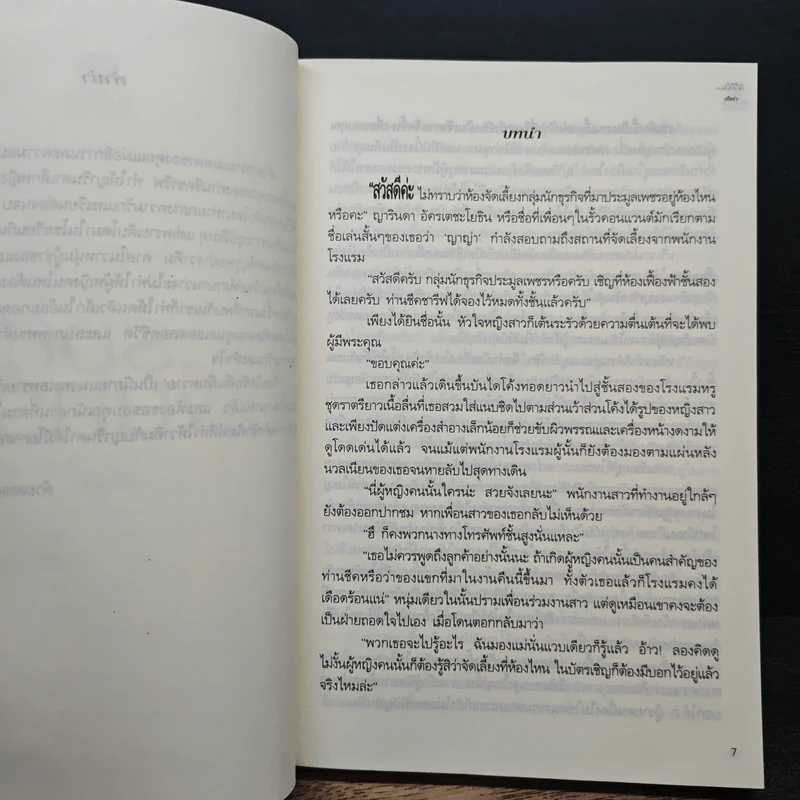 คำนำ
ปริศรา
บทนำ
"สวัสดีค่ะ ไม่ทราบว่าห้องจัดเลี้ยงกลุ่มนักธุรกิจที่มาประมูลเพชรอยู่ห้องไหน
หรือคะ" ญารินดา อัครเตชะโยธิน หรือชื่อที่เพื่อนๆในรั้วคอนแวนต์มักเรียกตาม
ชื่อเล่นสั้นๆของเธอว่า 'ญาญ่า' กำลังสอบถามถึงสถานที่จัดเลี้ยงจากพนักงาน
โรงแรม
"สวัสดีครับ กลุ่มนักธุรกิจประมูลเพชรหรือครับ เชิญที่ห้องเฟื้องฟ้าชั้นสอง
ได้เลยครับ ท่านชีคชารีฟได้จองไว้หมดทั้งชั้นแล้วครับ"
เพียงได้ยินชื่อนั้น หัวใจหญิงสาวก็เต้นระรัวด้วยความตื่นเต้นที่จะได้พบ
ผู้มีพระคุณ
"ขอบคุณค่ะ"
เธอกล่าวแล้วเดินขึ้นบันไดโค้งทอดยาวนำไปสู่ชั้นสองของโรงแรมหรู
ชุดราตรียาวเนื้อลื่นที่เธอสวมใส่แนบชิดไปตามส่วนเว้าส่วนโค้งได้รูปของหญิงสาว
และเพียงปัดแต่งเครื่องสำอางเล็กน้อยก็ช่วยขับผิวพรรณและเครื่องหน้างดงามให้
ดูโดดเด่นได้แล้ว จนแม้แต่พนักงานโรงแรมผู้นั้นก็ยังต้องมองตามแผ่นหลัง
นวลเนียนของเธอจนหายลับไปสุดทางเดิน
"นี่ผู้หญิงคนนั้นใครน่ะ สวยจังเลยนะ" พนักงานสาวที่ทำงานอยู่ใกล้ๆ
ยังต้องออกปากชม หากเพื่อนสาวของเธอกลับไม่เห็นด้วย
"ฮึ ก็คงพวกนางทางโทรศัพท์ชั้นสูงนั่นแหละ"
"เธอไม่ควรพูดถึงลูกค้าอย่างนั้นนะ ถ้าเกิดผู้หญิงคนนั้นเป็นคนสำคัญของ
ท่านชีคหรือว่าของแขกที่มาในงานคืนนี้ขึ้นมา ทั้งตัวเธอแล้วก็โรงแรมคงได้
เดือดร้อนแน่" หนุ่มเดียวในนั้นปรามเพื่อนร่วมงานสาว แต่ดูเหมือนเขาคงจะต้อง
เป็นฝ่ายถอดใจไปเอง เมื่อโดนตอกกลับมาว่า
"พวกเธอจะไปรู้อะไร ฉันมองแม่นั่นแวบเดียวก็รู้แล้ว อ้าว! ลองคิดดู
ไม่งั้นผู้หญิงคนนั้นก็ต้องรู้สิว่าจัดเลี้ยงที่ห้องไหน ในบัตรเชิญก็ต้องมีบอกไว้อยู่แล้ว
จริงไหมล่ะ"
7